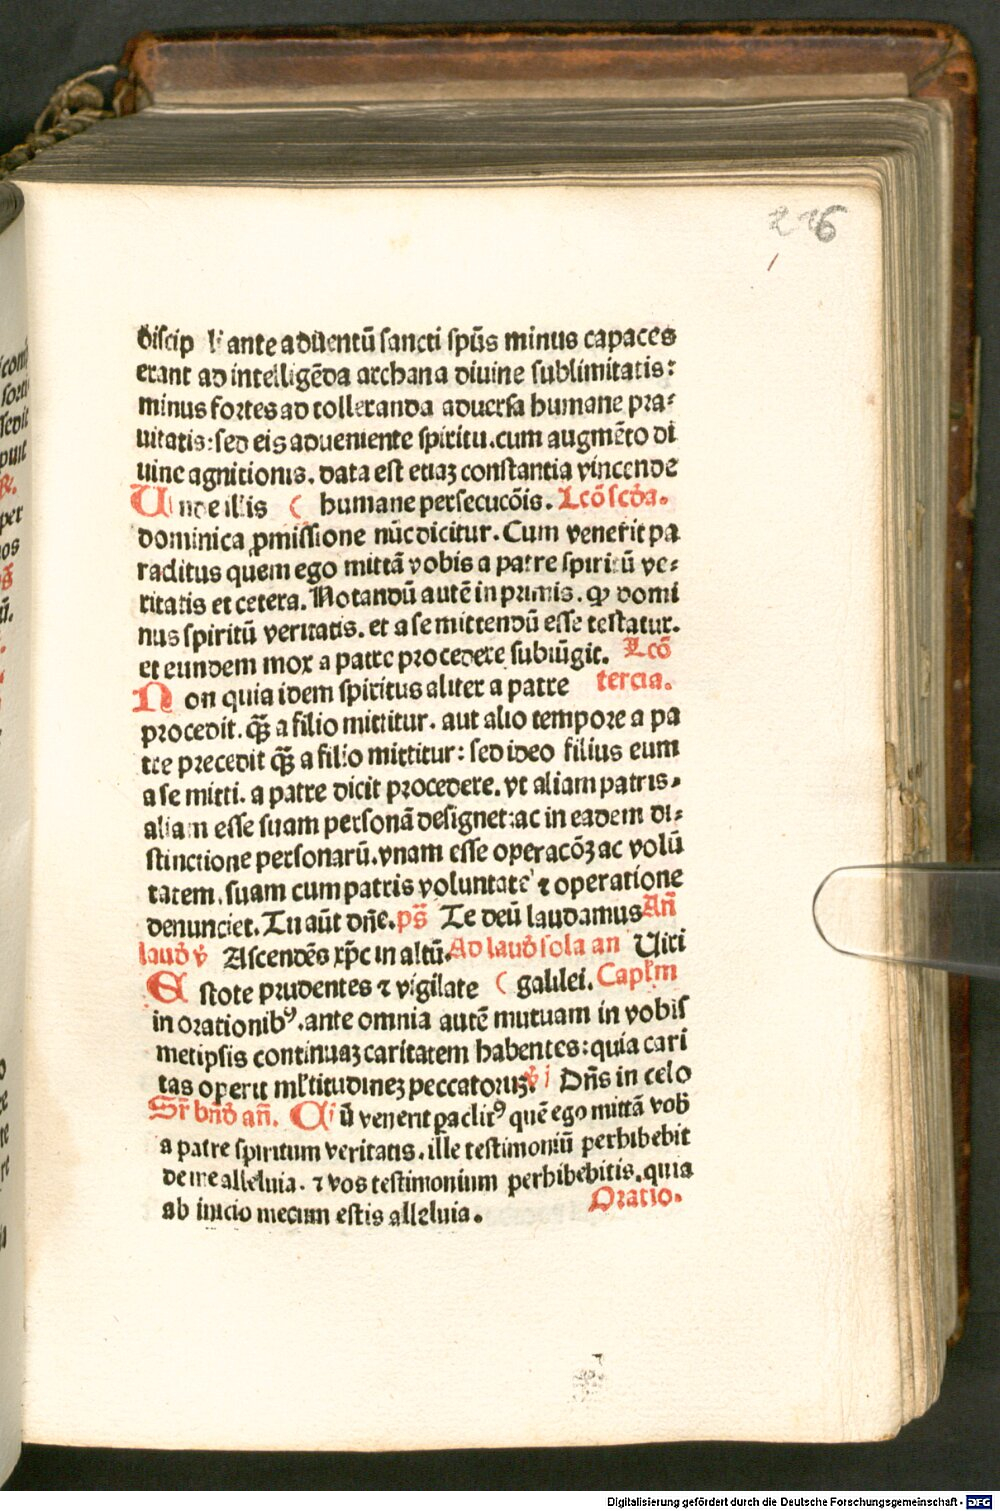 226
discip li ante aduentū sancti spūs minus capaces
erant ad intelligēda archana diuine sublimitatis:
minus fortes ad tolleranda aduersa humane pra⸗
uitatis: sed eis adueniente spiritu. cum augmēto di
uine agnitionis. data est etiaꝫ constantia vincende
Unde illis ( humane persecucōis. Lcō scda.
dominica ꝓmissione nūc dicitur. Cum venerit pa
raclitus quem ego mittā vobis a patre spiritū ve⸗
ritatis et cetera. Notandū autē in primis. ꝙ domi
nus spiritū veritatis. et a se mittendū esse testatur.
et eundem mox a patre procedere subiūgit. Lcō
Non quia idem spiritus aliter a patre tercia.
procedit. qȝ̄ a filio mittitur. aut alio tempore a pa
tre precedit qȝ̄ a filio mittitur: sed ideo filius eum
a se mitti. a patre dicit procedere. vt aliam patris⸗
aliam esse suam personā designet: ac in eadem di⸗
stinctione personarū. vnam esse operacōꝫ ac volū
tatem. suam cum patris voluntate ⁊ operatione
denunciet. Tu aūt dn̄e. ps̄ Te deū laudamus An̄
laud̓ v̓ Ascendēs xp̄c in altū. Ad laud̓ sola an Uiri
Estote prudentes ⁊ vigilate ( galilei. Capl̄m
in orationibꝰ. ante omnia autē mutuam in vobis
metipsis continuaꝫ caritatem habentes: quia cari
tas operit ml̓titudineꝫ peccatoruꝫ. v̓ i Dn̄s in celo
Sr̄ bn̄d̓ an̄. Cū venerit ꝑaclitꝰ quē ego mittā vob̓
a patre spiritum veritatis. ille testimoniū perhibebit
de me alleluia. ⁊ vos testimonium perhibebitis. quia
ab inicio mecum estis alleluia. Oratio.
Digitalisierung gefördert durch die Deutsche Forschungsgemeinschaft - DFG